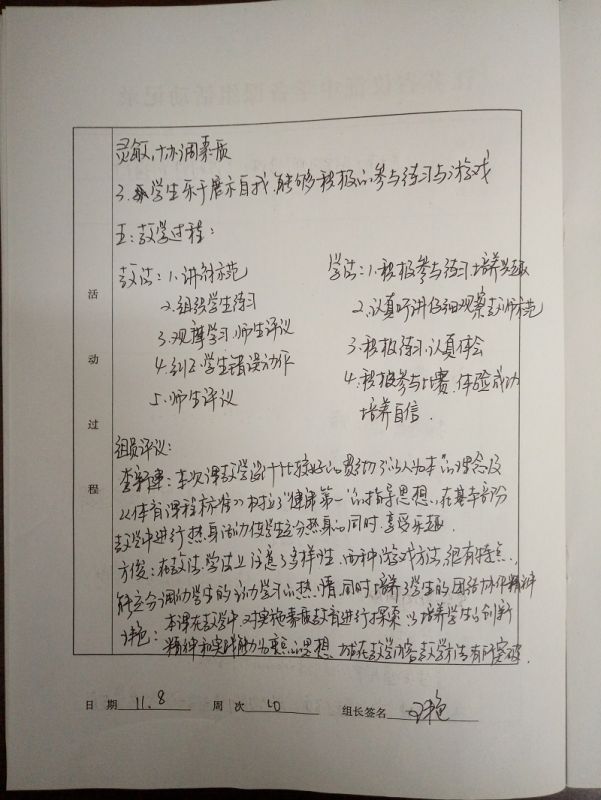 灵敏,协调素质
3.学生乐于展示自我,能够积极的参与练习与游戏
五:教学过程:
教法:1.讲解示范
学法:1.积极参与练习,培养兴趣
2.组织学生练习
2.认真听讲仔细观察教师示范
3.观摩学习,师生评议
3.积极练习,认真体会
4.纠正学生错误动作
4.积极参与比赛,体验成功
5.师生评议
培养自信.
活动过程
组员评议:
李新建:本次课教学设计比较好的贯彻了"以人为本"的理念及
《体育课程标准》树立了"健康第一"的指导思想,在基本部分
教学中进行热身活动使学生充分热身的同时,享受乐趣.
方俊:在教法,学法上注意了多样性,两种游戏方法,很有特点,
能充分调动学生的活动学习的热情,同时培养了学生的团结协作精神
本课在教学中,对实施素质教育进行探索,以培养学生的创新
艳:精神和实践能力为重点的思想,在教学内容教学方法有所突破.
日 期 11.8 周 次 10 组长签名 艳